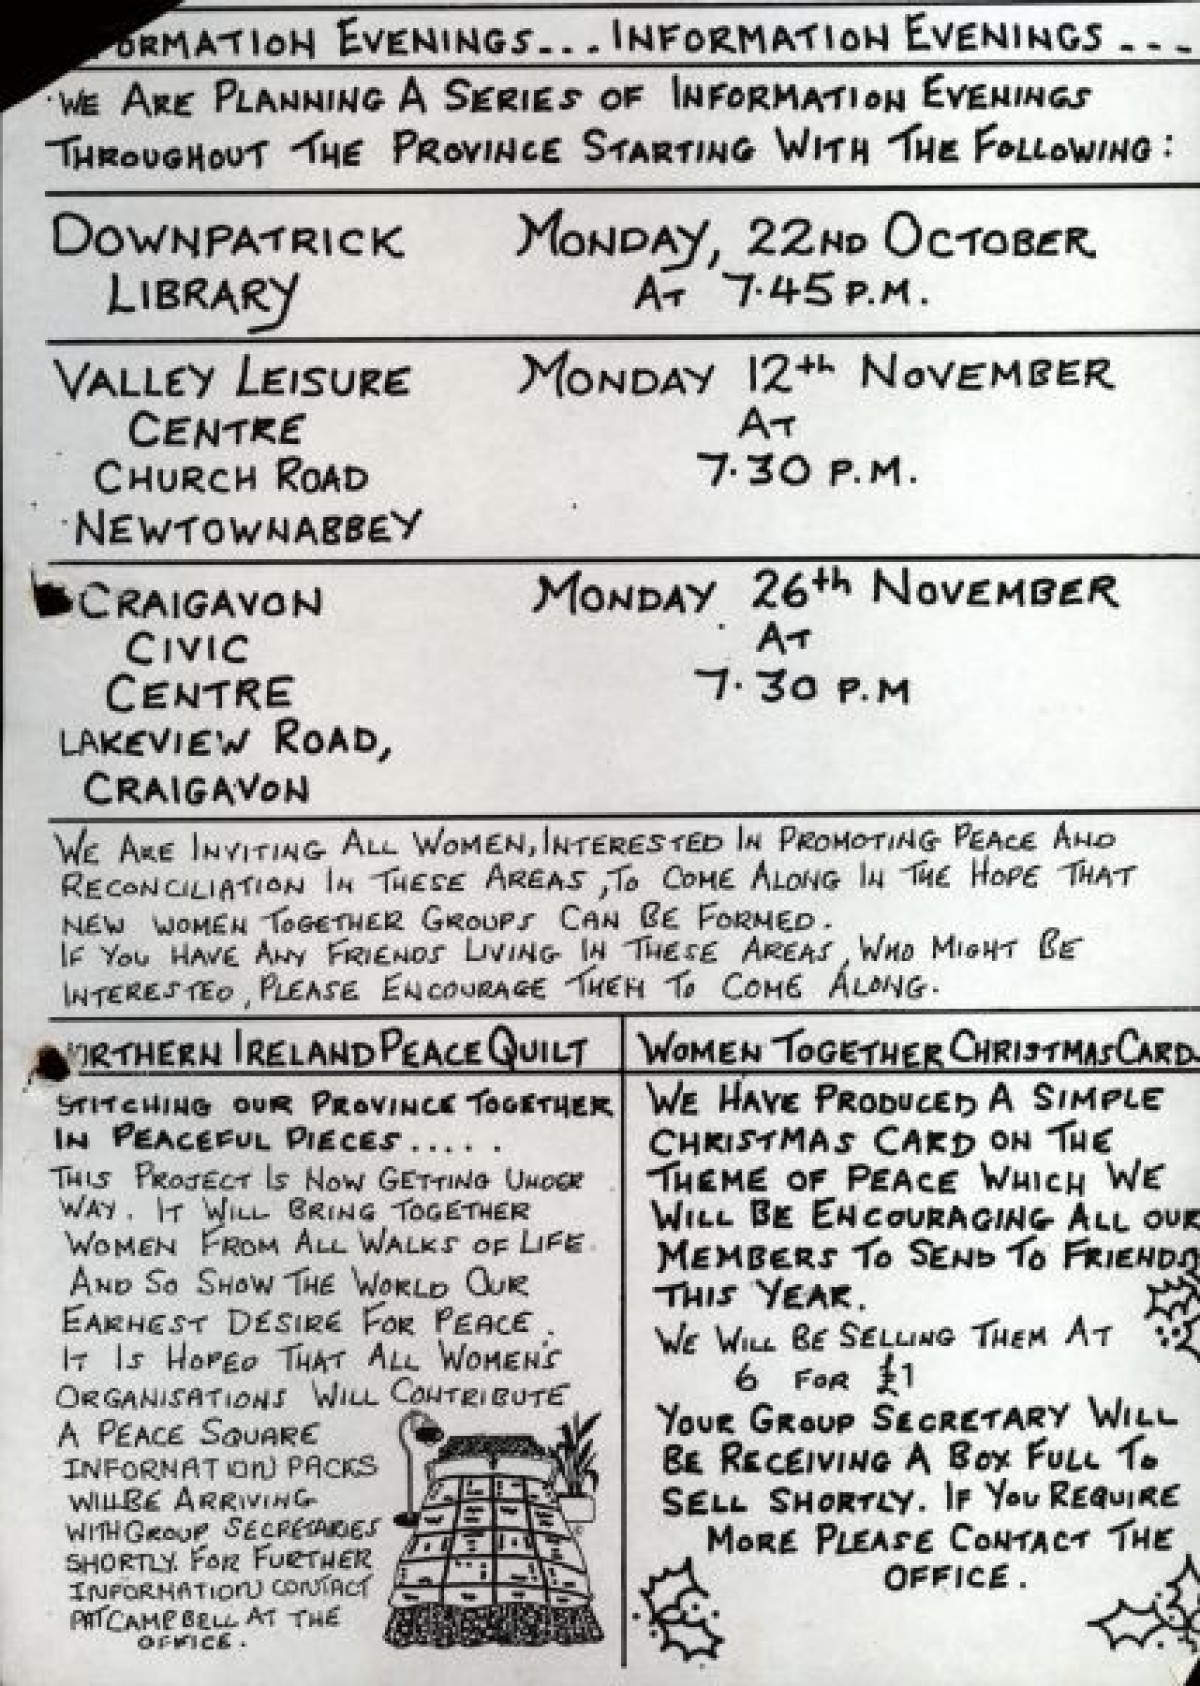 ORMATION EVENINGS... INFORMATION EVENINGS ...
WE ARE PLANNING A SERIES OF INFORMATION EVENINGS
THROUGHOUT THE PROVINCE STARTING WITH THE FOLLOWING:
DOWNPATRICK MONDAY, 22ND OCTOBER
LIBRARY AT 7.45 P.M.
VALLEY LEISURE MONDAY 12th NOVEMBER
CENTRE AT
CHURCH ROAD 7.30 P.M.
NEWTOWNABBEY
CRAIGAVON MONDAY 26th NOVEMBER
CIVIC AT
CENTRE 7.30 P.M
LAKEVIEW ROAD,
CRAIGAVON
WE ARE INVITING ALL WOMEN, INTERESTED IN PROMOTING PEACE AND
RECONCILIATION IN THESE AREAS, TO COME ALONG IN THE HOPE THAT
NEW WOMEN TOGETHER GROUPS CAN BE FORMED.
IF YOU HAVE ANY FRIENDS LIVING IN THESE AREAS, WHO MIGHT BE
INTERESTED, PLEASE ENCOURAGE THEM TO COME ALONG.
ORTHERN IRELAND PEACE QUILT
STITCHING OUR PROVINCE TOGETHER
IN PEACEFUL PIECES.....
THIS PROJECT IS NOW GETTING UNDER
WAY. IT WILL BRING TOGETHER
WOMEN FROM ALL WALKS OF LIFE
AND SO SHOW THE WORLD OUR
EARNEST DESIRE FOR PEACE.
IT IS HOPED THAT ALL WOMEN'S
ORGANISATIONS WILL CONTRIBUTE
A PEACE SQUARE
INFORMATION PACKS
WILL BE ARRIVING
WITH GROUP SECRETARIES
SHORTLY. FOR FURTHER
INFORMATION CONTACT
PAT CAMPBELL AT THE
OFFICE.
WOMEN TOGETHER CHRISTMAS CARD
WE HAVE PRODUCED A SIMPLE
CHRISTMAS CARD ON THE
THEME OF PEACE WHICH WE
WILL BE ENCOURAGING ALL OUR
MEMBERS TO SEND TO FRIENDS
THIS YEAR.
WE WILL BE SELLING THEM AT
6 FOR £1
YOUR GROUP SECRETARY WILL
BE RECEIVING A BOX FULL TO
SELL SHORTLY. IF YOU REQUIRE
MORE PLEASE CONTACT THE
OFFICE.